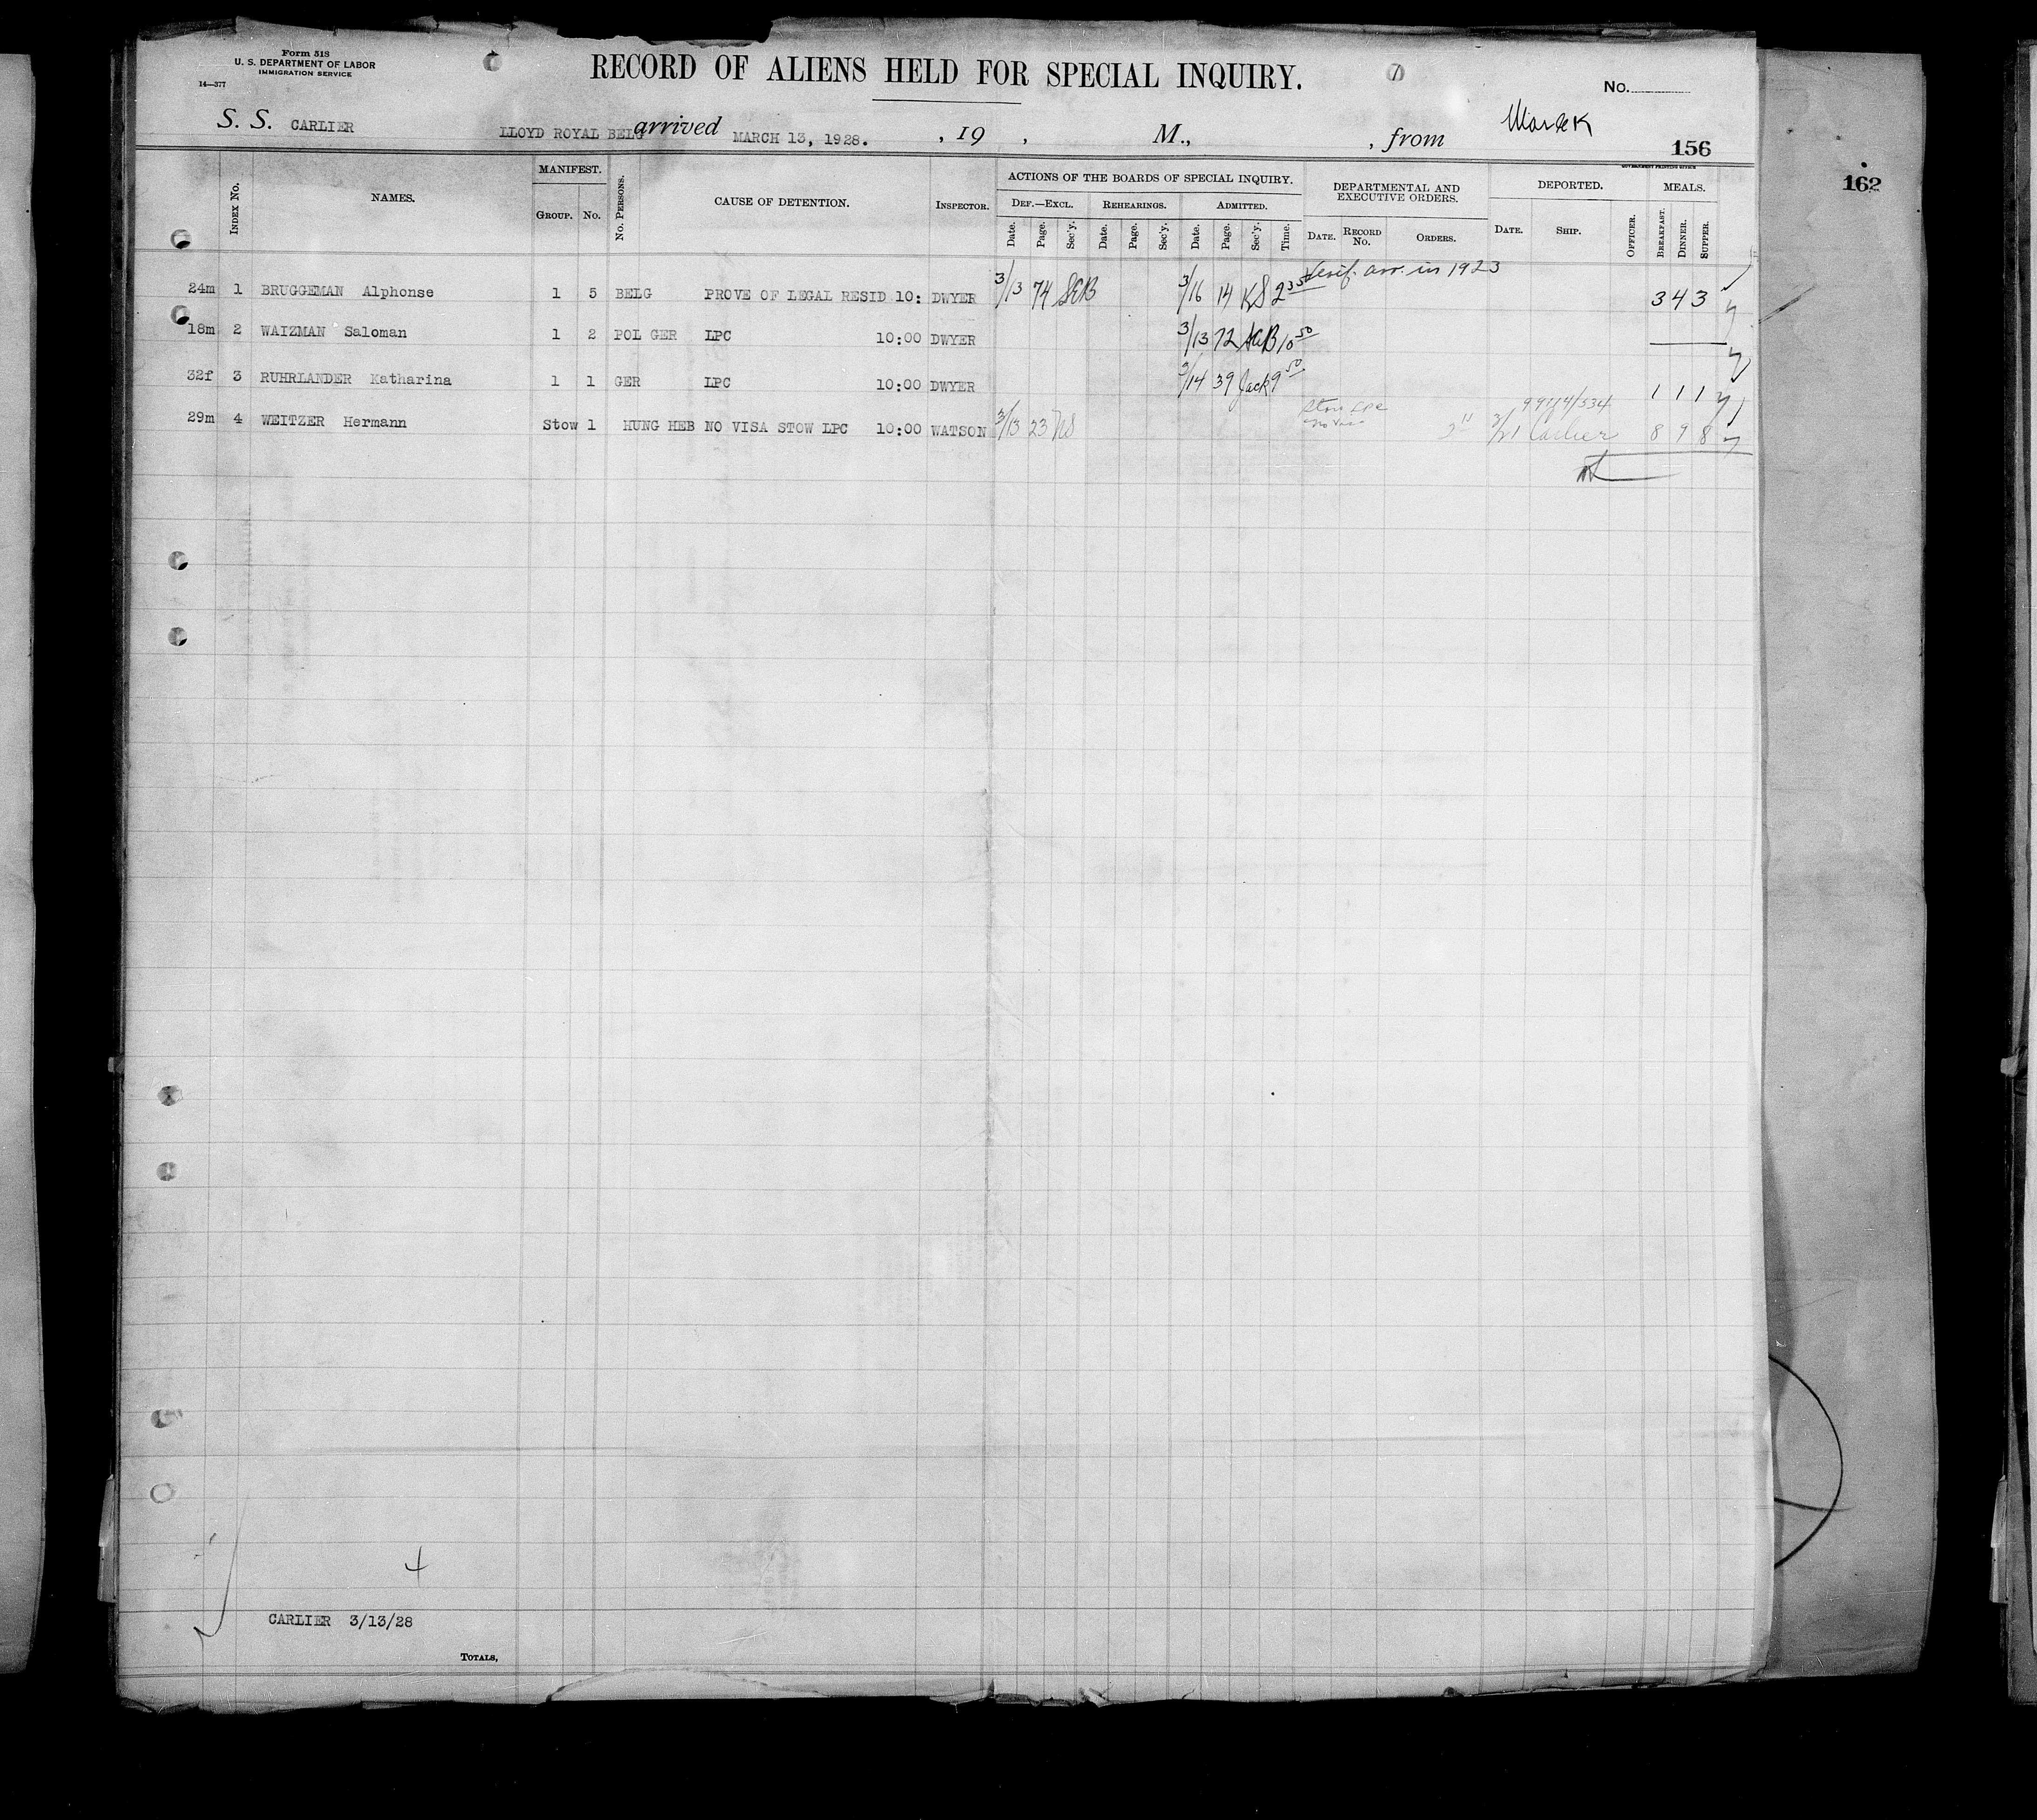 Form 518
U. S. DEPARTMENT OF LABOR
IMMIGRATION SERVICE
14—377
RECORD OF ALIENS HELD FOR SPECIAL INQUIRY.
No.
S. S. CARLIER LLOYD ROYAL BELG arrived MARCH 13, 1928. , 19 , M., , from
156
GOVERNMENT PRINTING OFFICE
162
INDEX No. NAMES. MANIFEST. GROUP. No. No. PERSONS. CAUSE OF DETENTION. INSPECTOR.
ACTIONS OF THE BOARDS OF SPECIAL INQUIRY. DEPARTMENTAL AND EXECUTIVE ORDERS. DEPORTED. MEALS.
DEF.—EXCL. REHEARINGS. ADMITTED.
Date. Page. Sec'y. Date. Page. Sec'y. Date. Page. Sec'y. Time. DATE. RECORD No. ORDERS. DATE. SHIP. OFFICER. BREAKFAST. DINNER. SUPPER.
Verif. arr. in 1923
24m 1 BRUGGEMAN Alphonse 1 5 BELG PROVE OF LEGAL RESID 10: DWYER 3/13 74 3/16 14 KS 3 4 3
18m 2 WAIZMAN Saloman 1 2 POL GER LPC 10:00 DWYER 3/13 72 10 50
32f 3 RUHRLANDER Katharina 1 1 GER LPC 10:00 DWYER 3/14 39 Jack 9 50 1 1 1
29m 4 WEITZER Hermann Stow 1 HUNG HEB NO VISA STOW LPC 10:00 WATSON 3/13 23 Stow LPC No Visa 3/21 Carlier 8 9 8
4
CARLIER 3/13/28
TOTALS,